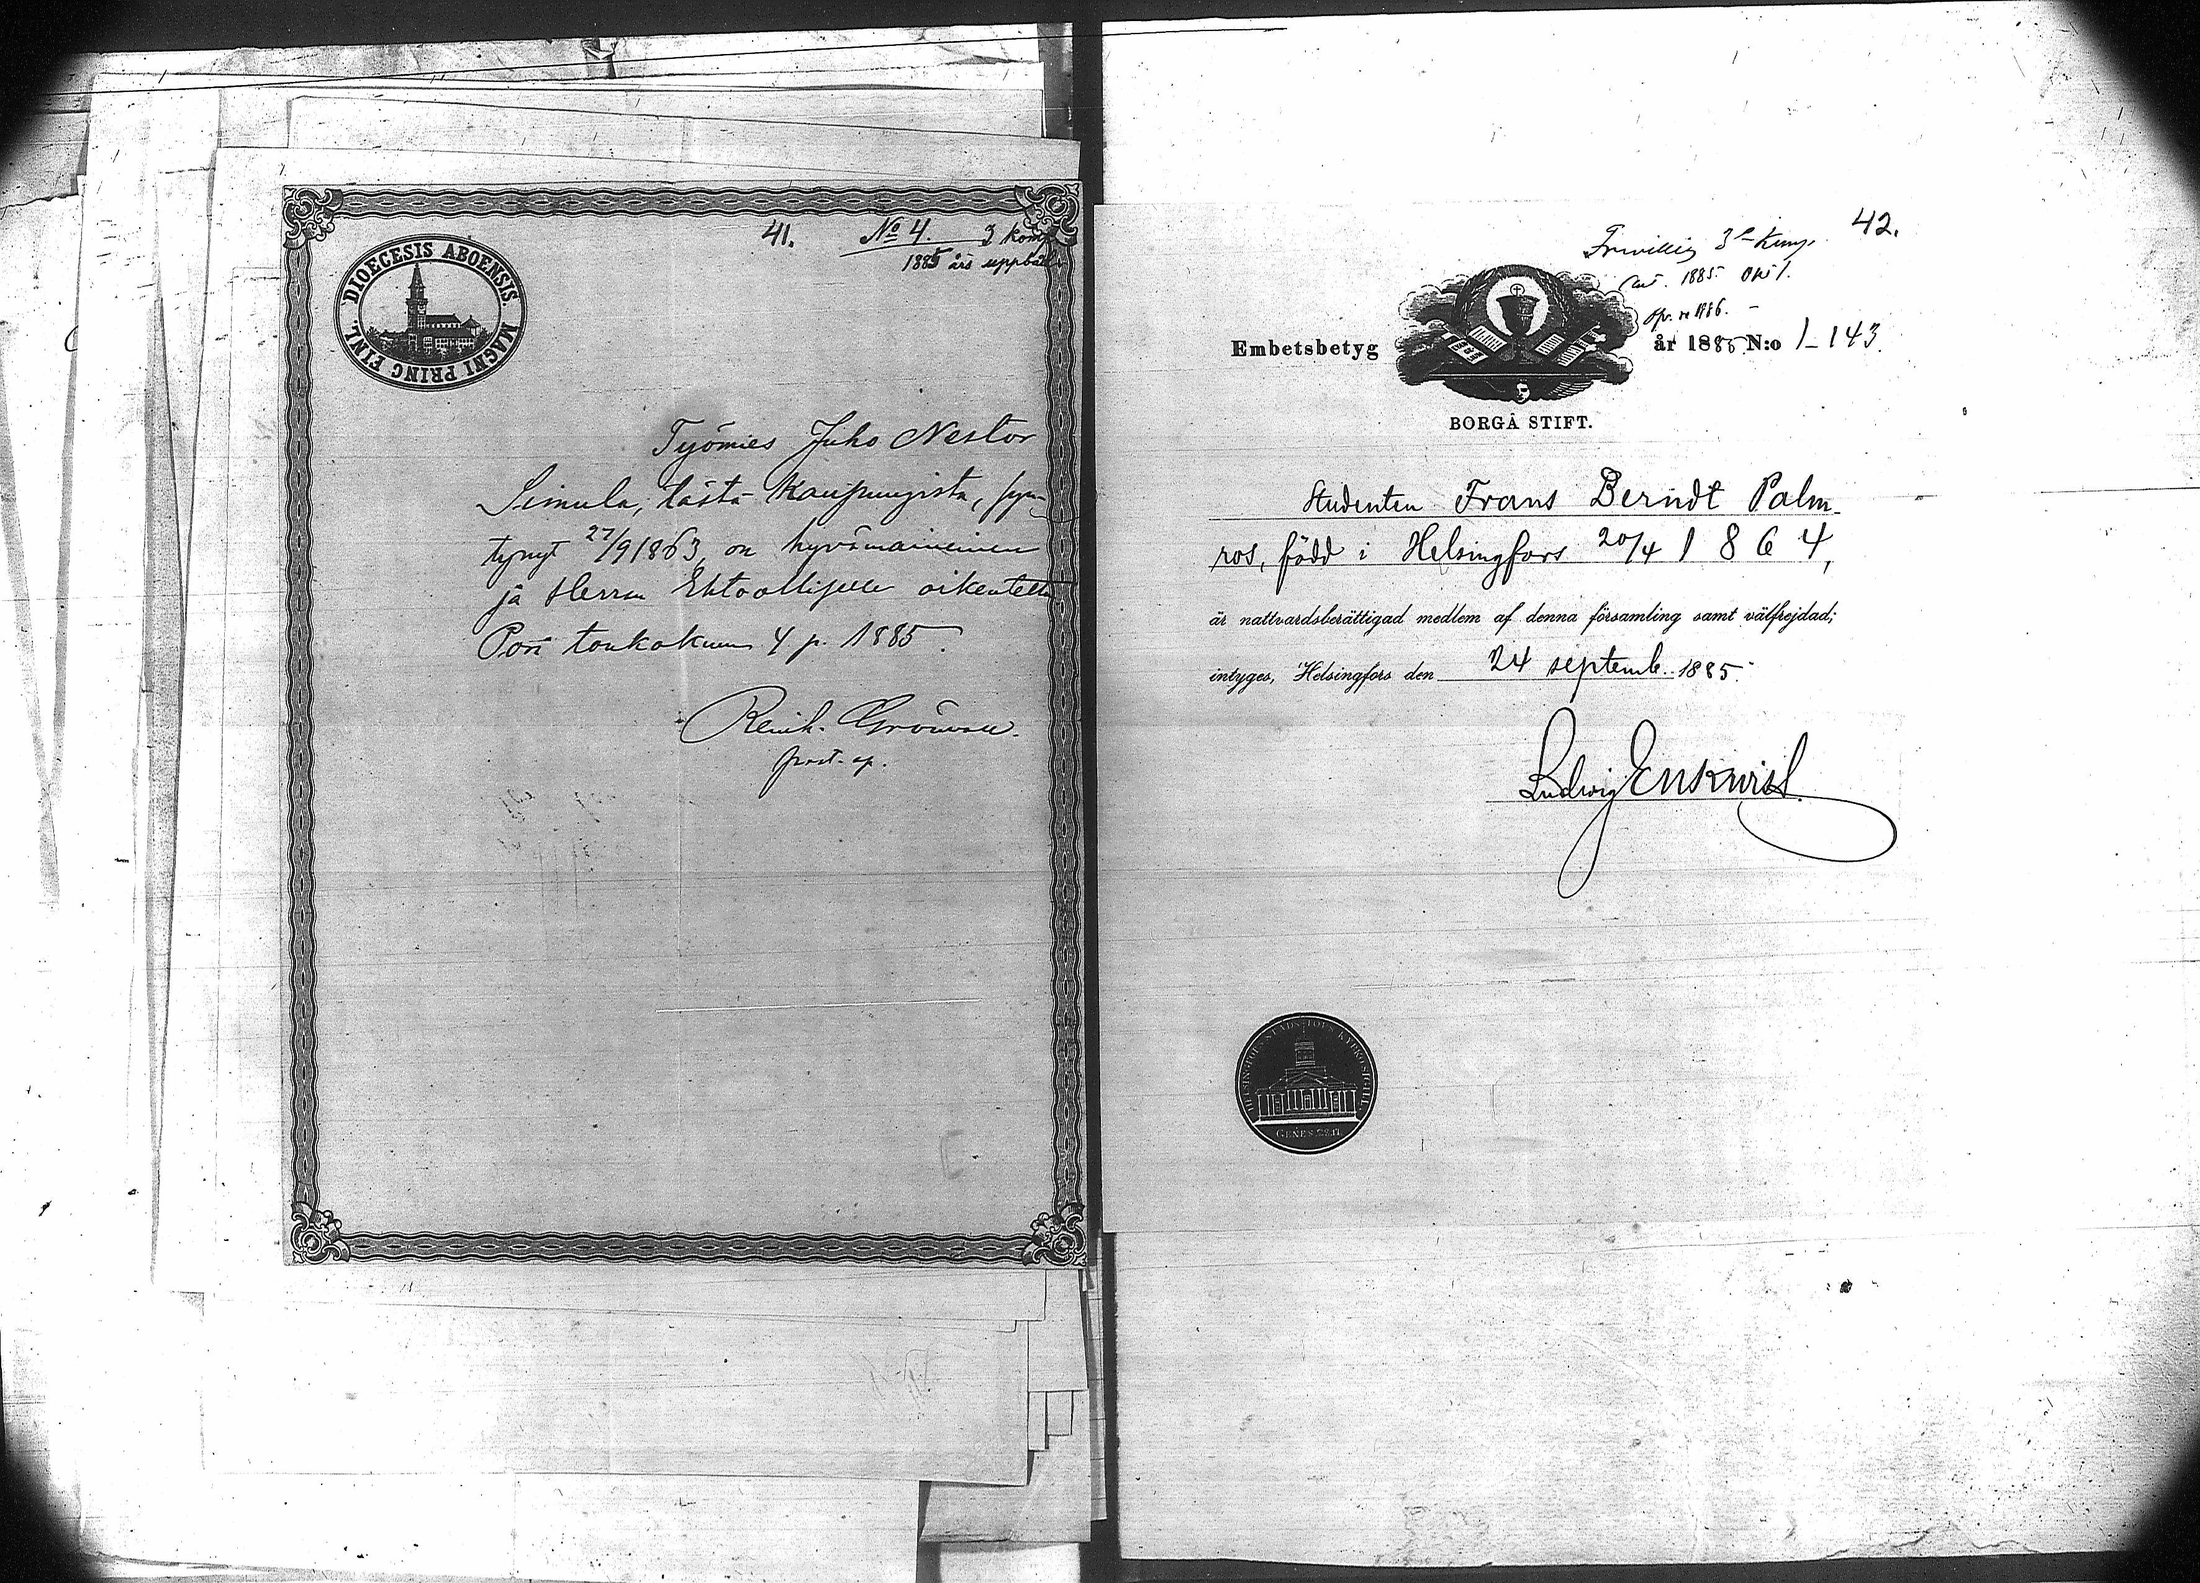 41. No 4. 3 komp
1885 års uppbåd
DIOECESIS ABOENSIS. MAGNI PRINC FINL.
Työmies Juho Nestor
Simula, tästä kaupungista, syn-
tynyt 27/9 1863, on hyvämaineinen
ja Herran Ehtoolliselle oikeutettu
Pori toukokuun 4 p. 1885.
Reinh. Grönvall.
past. ap.
42.
Frivillig 3e Komp.
1885 Okt 1.
1886.
Embetsbetyg år 1885 N:o 1-143.
BORGÅ STIFT.
Studenten Frans Berndt Palm-
ros, född i Helsingfors 20/4 1864,
är nattvardsberättigad medlem af denna församling samt välfrejdad;
intyges, Helsingfors den 24 septemb. 1885.
Ludwig Enkwist.
HELSINGFORS STADS KYRKOSIGILL
GENES. 28.17.